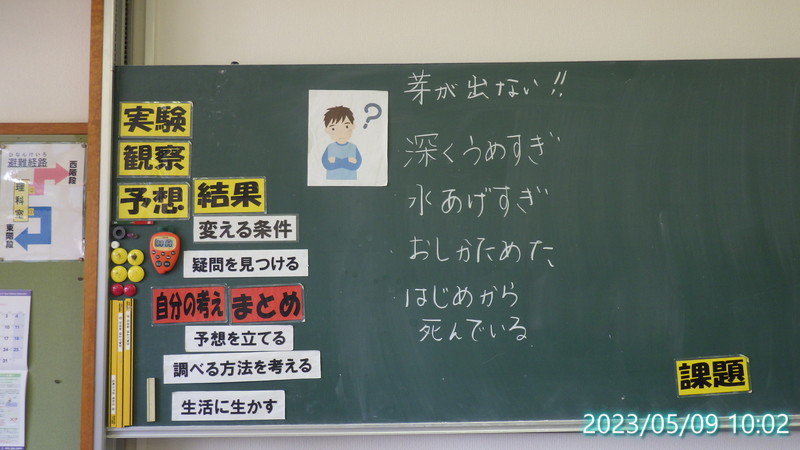 芽が出ない!!
深くうめすぎ
水あげすぎ
おしかためた
はじめから
死んでいる
実験
観察
予想
結果
変える条件
疑問を見つける
自分の考え
まとめ
予想を立てる
調べる方法を考える
生活に生かす
課題
?
ひなんけいろ
避難経路
西階段
理科室
東階段
2023/05/09 10:02